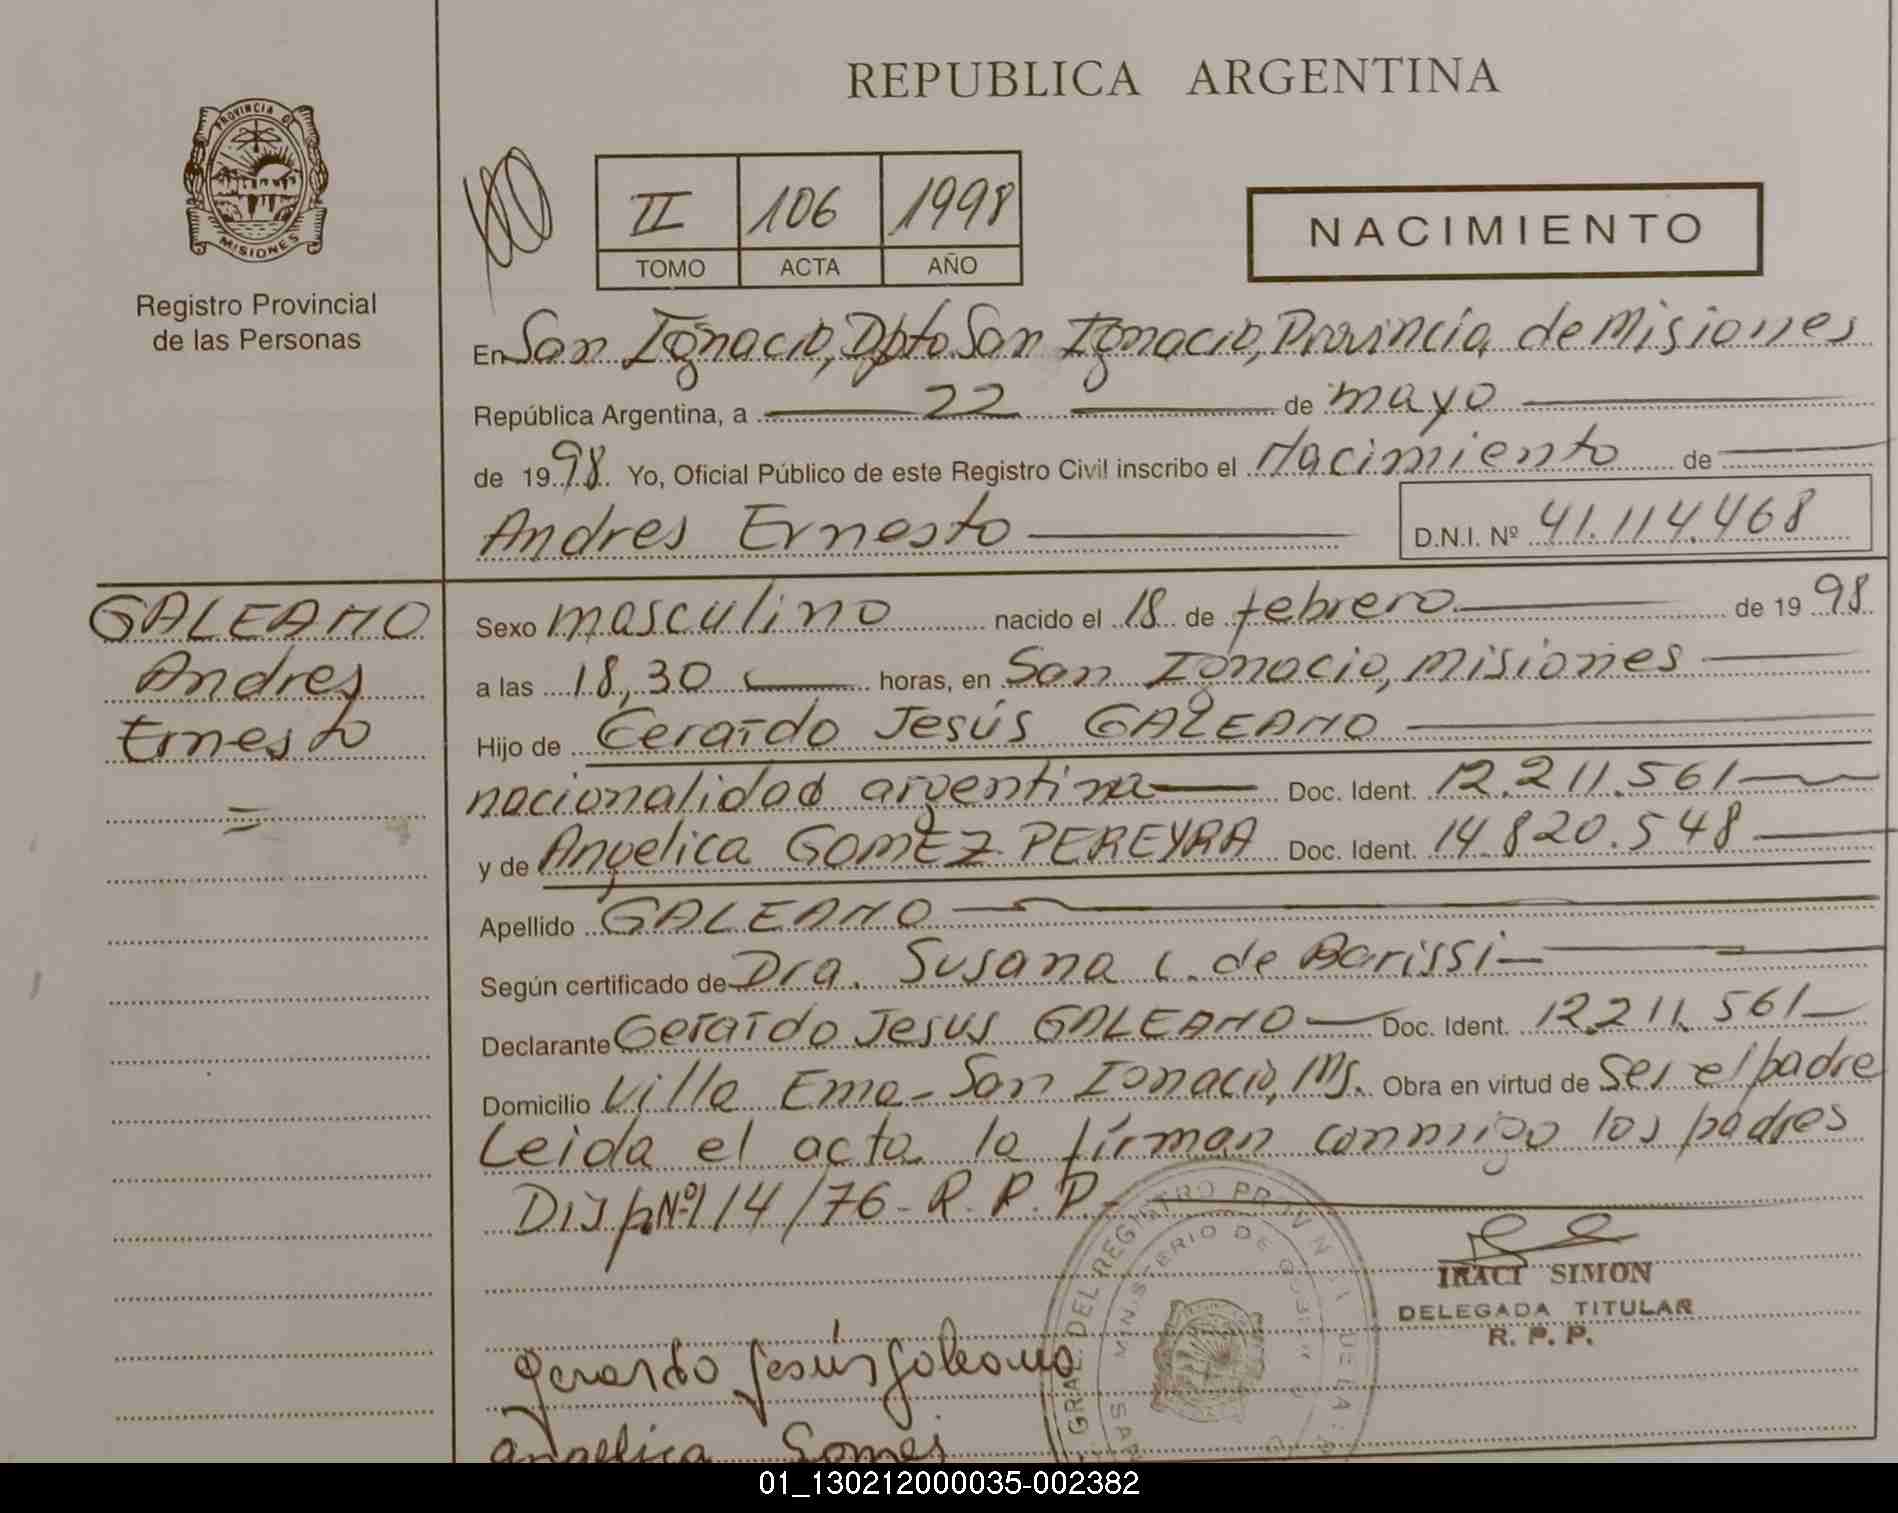 REPUBLICA ARGENTINA
PROVINCIA DE
MISIONES
Registro Provincial
de las Personas
II 106 1998
TOMO ACTA AÑO
NACIMIENTO
En San Ignacio, Dpto San Ignacio, Provincia de Misiones
República Argentina, a 22 de mayo
de 1998 Yo, Oficial Público de este Registro Civil inscribo el Nacimiento de
Andres Ernesto
D.N.I. Nº 41.114.468
GALEANO
Andres
Ernesto
=
Sexo masculino nacido el 18 de febrero de 1998
a las 18,30 horas, en San Ignacio, Misiones
Hijo de Gerardo Jesús GALEANO
nacionalidad argentina Doc. Ident. 12.211.561
y de Angelica GOMEZ PEREYRA Doc. Ident. 14.820.548
Apellido GALEANO
Según certificado de Dra. Susana C. de Barissi
Declarante Gerardo Jesus GALEANO Doc. Ident. 12.211.561
Domicilio Villa Ema - San Ignacio, Ms. Obra en virtud de ser el padre
Leida el acta la firman conmigo los padres
Disp. Nº 114/76 - R.P.P.
IRACI SIMON
DELEGADA TITULAR
R. P. P.
GRAL. DEL REGISTRO PROVINCIAL DE LAS
MINISTERIO DE GOBIERNO
Gerardo Jesús Galeano
Angelica Gomes
01_130212000035-002382